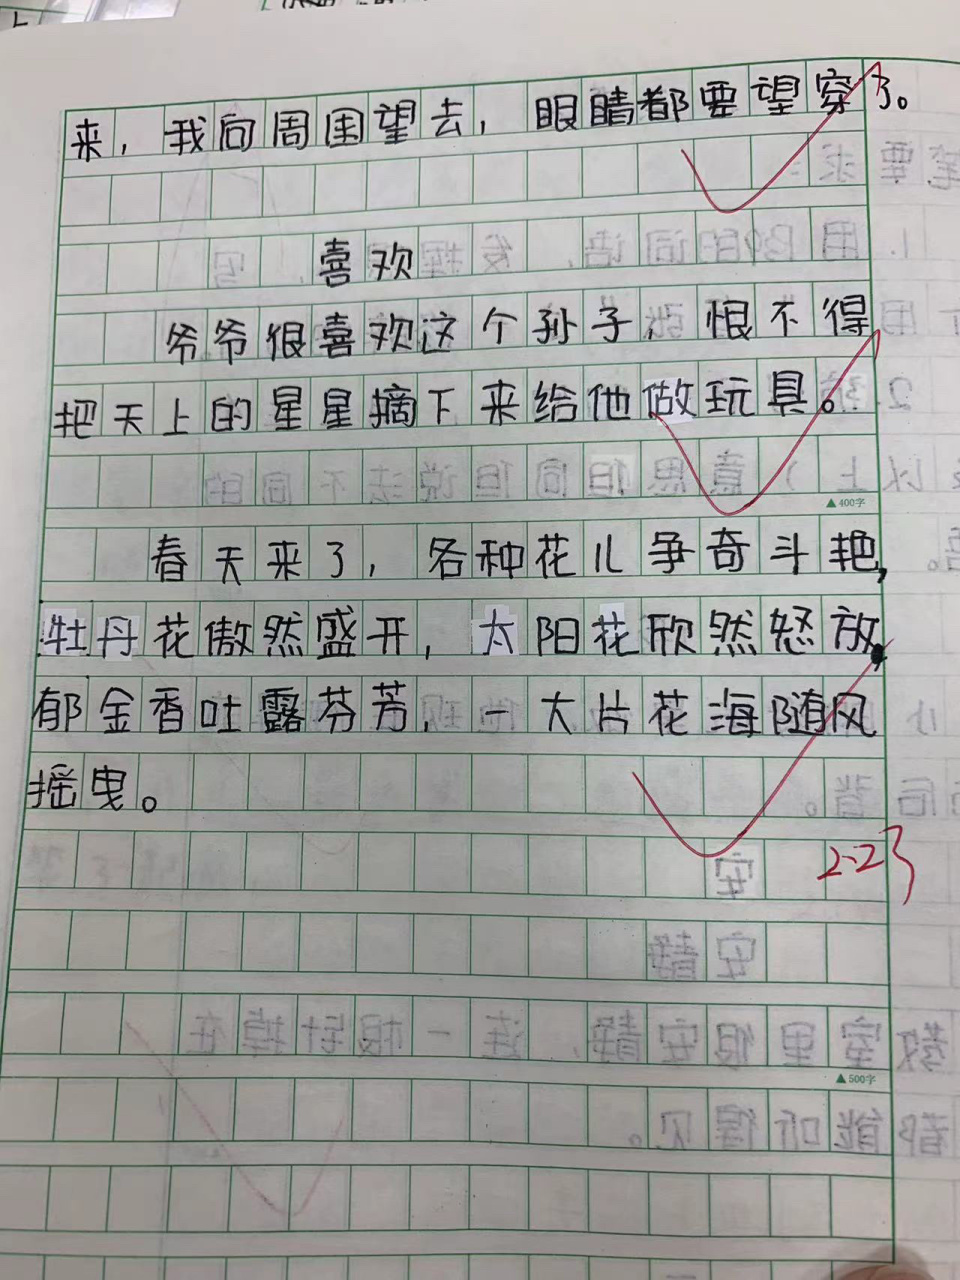 来，我向周围望去，眼睛都要望穿了。
喜欢
爷爷很喜欢这个孙子，恨不得
把天上的星星摘下来给他做玩具。
▲400字
春天来了，各种花儿争奇斗艳，
牡丹花傲然盛开，太阳花欣然怒放，
郁金香吐露芬芳，一大片花海随风
摇曳。
2.23
▲500字